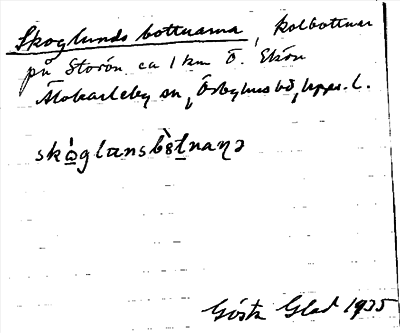 Skoglunds bottnarna, kolbottnar
på Storön ca 1 km Ö. Ekön
Älvkarleby sn, Örbyhus hd, Upps. l.
skò̱glᴜnsbò̱tnaɳə
Gösta Glad 1935